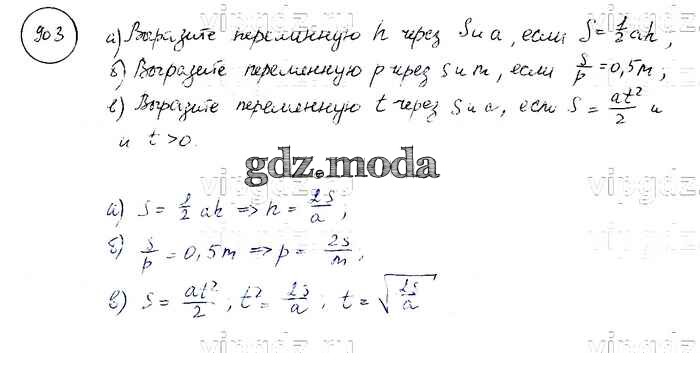 903
а) Выразите переменную h через S и a, если S = 1/2 ah;
б) Выразите переменную p через s и m, если s/p = 0,5m;
в) Выразите переменную t через s и a, если S = at²/2 и
и t > 0.
gdz.moda
а) S = 1/2 ah => h = 2S/a;
б) s/p = 0,5m => p = 2s/m;
в) S = at²/2; t² = 2s/a; t = √(2s/a)
vipgdz.ru